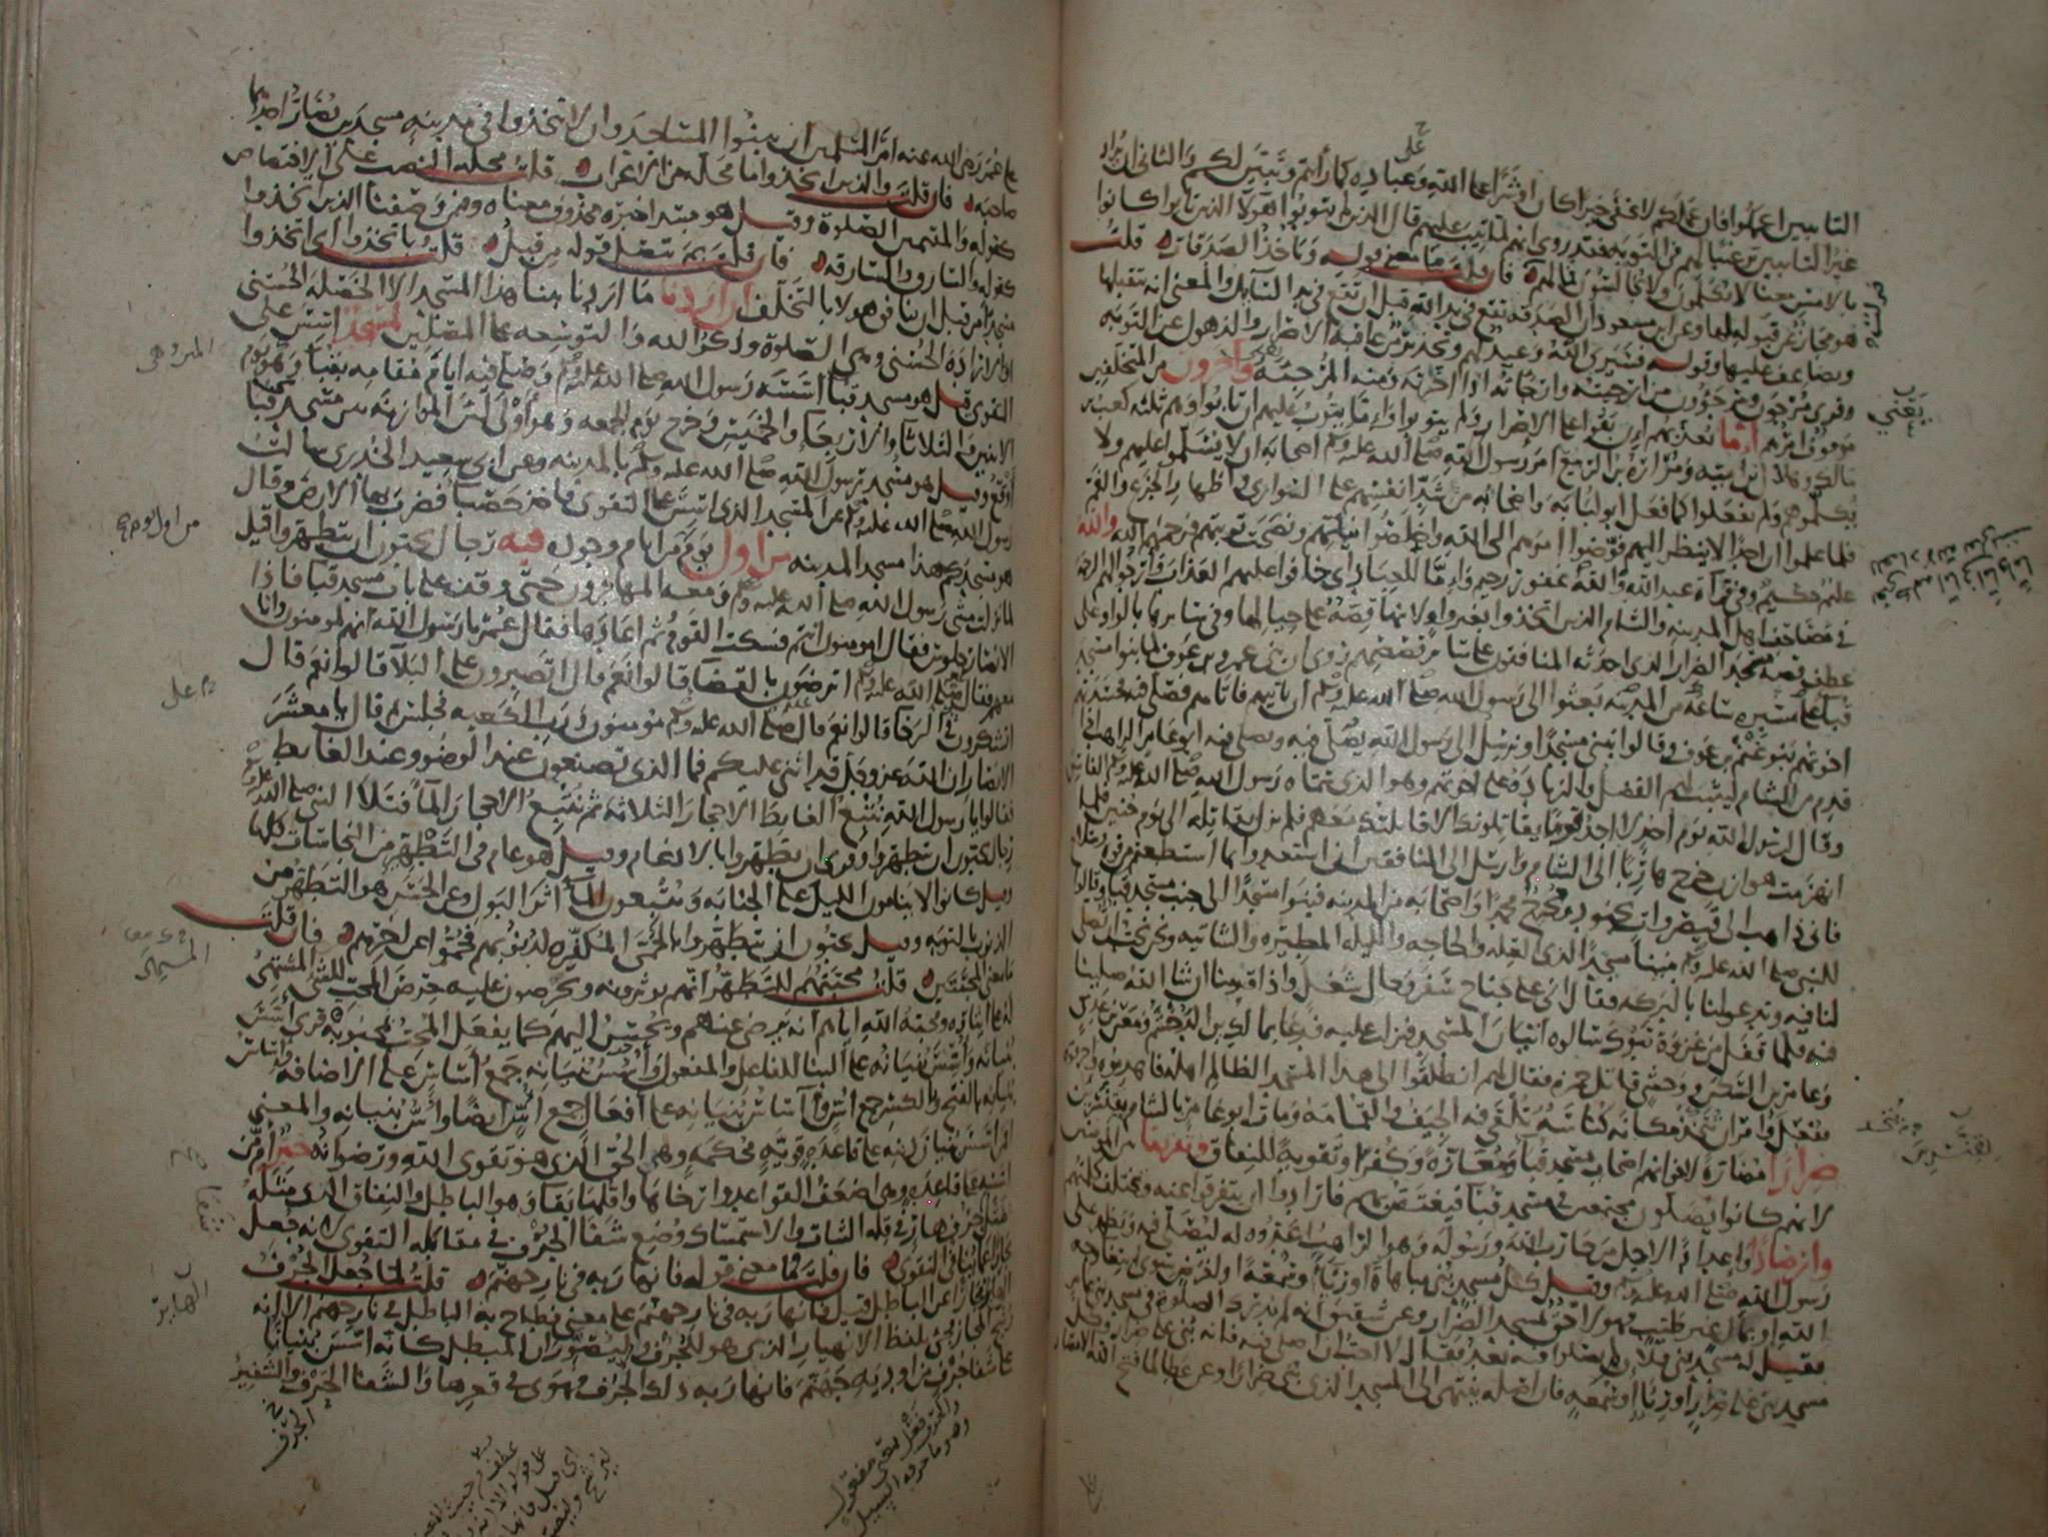 التائبين اعملوا فان عملكم لا يخفى خيرا كان او شرا على الله وعباده كما رأيتم وتبين لكم والثانى ان يراد
غير التائبين ترغيبا لهم فى التوبة فقد روى انهم لما تيب عليهم قال الذين لم يتوبوا هؤلاء الذين تابوا كانوا
بالامس معنا لا يكلمون ولا يجالسون فما لهم فان قلت فما معنى قوله وياخذ الصدقات قلت
هو مجاز عن قبوله لها وعن ابن مسعود ان الصدقة تقع فى يد الله قبل ان تقع فى يد السائل والمعنى انه يتقبلها
ويضاعف عليها وقوله فسيرى الله وعيد لهم وتحذير من عاقبة الاصرار والذهول عن التوبة
وقرئ مرجون ومرجؤون من ارجيته وارجأته اذا اخرته ومنه المرجئة وآخرون من المتخلفين
موقوف امرهم اما يعذبهم ان بقوا على الاصرار ولم يتوبوا واما يتوب عليهم ان تابوا وهم ثلثة كعب بن
مالك وهلال بن امية ومرارة بن الربيع امر رسول الله صلى الله عليه وسلم اصحابه ان لا يسلموا عليهم ولا
يكلموهم ولم يفعلوا كما فعل ابو لبابة واصحابه من شد انفسهم على السوارى واظهار الجزع والغم
فلما علموا ان احدا لا ينظر اليهم فوضوا امرهم الى الله واخلصوا نياتهم ونصحت توبتهم فرحمهم الله والله
عليم حكيم وفى قراءة عبد الله والله غفور رحيم واما للعباد اى خافوا عليهم العذاب وارجوا لهم الرحمة
فى مصاحف اهل المدينة والشام الذين اتخذوا بغير واو لانها قصة على حيالها وفى سائرها بالواو على
عطف قصة مسجد الضرار الذى احدثه المنافقون على سائر قصصهم روى ان بنى عمرو بن عوف لما بنوا مسجد
قبا بعثوا الى رسول الله صلى الله عليه وسلم ان ياتيهم فاتاهم فصلى فيه فحسدتهم
اخوتهم بنو غنم بن عوف وقالوا نبنى مسجدا ونرسل الى رسول الله يصلى فيه ويصلى فيه ابو عامر الراهب اذا
قدم من الشام ليثبت لهم الفضل والزيادة على اخوتهم وهو الذى سماه رسول الله صلى الله عليه وسلم الفاسق
وقال لرسول الله يوم احد لا اجد قوما يقاتلونك الا قاتلتك معهم فلم يزل يقاتله الى يوم حنين فلما
انهزمت هوازن خرج هاربا الى الشام وارسل الى المنافقين ان استعدوا بما استطعتم من قوة وسلاح
فانى ذاهب الى قيصر وآت بجنود ومخرج محمدا واصحابه من المدينة فبنوا مسجدا الى جنب مسجد قبا وقالوا
للنبى صلى الله عليه وسلم بنينا مسجدا لذى العلة والحاجة والليلة المطيرة والشاتية ونحن نحب ان تصلى
لنا فيه وتدعو لنا بالبركة فقال انى على جناح سفر وحال شغل واذا قدمنا ان شا الله صلينا
فيه فلما قفل من غزوة تبوك سالوه اتيان المسجد فنزلت عليه فدعا بمالك بن الدخشم ومعن بن عدى
وعامر بن السكن ووحشى قاتل حمزة فقال لهم انطلقوا الى هذا المسجد الظالم اهله فاهدموه واحرقوه
ففعلوا وامر ان يتخذ مكانه كناسة تلقى فيه الجيف والقمامة ومات ابو عامر بالشام بقنسرين
ضرارا مضارة لاخوانهم اصحاب مسجد قبا ومعازة وكفرا وتقوية للنفاق وتفريقا بين المومنين
لانهم كانوا يصلون مجتمعين فى مسجد قبا فيغتص بهم فارادوا ان يتفرقوا عنه وتختلف كلمتهم
وارصادا واعدادا لاجل من حارب الله ورسوله وهو الراهب اعدوه له ليصلى فيه ويظهر على
رسول الله صلى الله عليه وسلم وقيل كل مسجد بنى مباهاة او رياء وسمعة او لغرض سوى ابتغاء وجه
الله او بمال غير طيب فهو لاحق بمسجد الضرار وعن شقيق انه لم يدرك الصلوة فى مسجد بنى عامر
فقيل له مسجد بنى فلان لم يصلوا فيه بعد فقال لا احب ان اصلى فيه فانه بنى على ضرار وكل
مسجد بنى على ضرار او رياء او سمعة فان اصله ينتهى الى المسجد الذى بنى ضرارا وعن عطا لما فتح الله الامصار
على
يعنى
بقنسرين
على عمر رضى الله عنه امر المسلمين ان يبنوا المساجد وان لا يتخذوا فى مدينة مسجدين يضار احدهما
صاحبه فان قلت والذين اتخذوا ما محله من الاعراب قلت محله النصب على الاختصاص
كقوله والمقيمين الصلوة وقيل هو مبتدا خبره محذوف معناه وممن وصفنا الذين اتخذوا
كقوله والسارق والسارقة فان قلت بم يتصل قوله من قبل قلت باتخذوا اى اتخذوا
مسجدا من قبل ان ينافق هولا بالتخلف ان اردنا ما اردنا ببنا هذا المسجد الا الخصلة الحسنى
او الارادة الحسنى وهى الصلوة وذكر الله والتوسعة على المصلين لمسجد اسس على
التقوى قيل هو مسجد قبا اسسه رسول الله صلى الله عليه وسلم وصلى فيه ايام مقامه بقبا وهى يوم
الاثنين والثلاثا والاربعا والخميس وخرج يوم الجمعة وهو اولى لان الموازنة بين مسجد قبا
اوقع وقيل هو مسجد رسول الله صلى الله عليه وسلم بالمدينة وعن ابى سعيد الخدرى سالت
رسول الله صلى الله عليه وسلم عن المسجد الذى اسس على التقوى فاخذ حصبا فضرب بها الارض وقال
هو مسجدكم هذا مسجد المدينة من اول يوم من ايام وجوده فيه رجال يحبون ان يتطهروا قيل
لما نزلت مشى رسول الله صلى الله عليه وسلم ومعه المهاجرون حتى وقف على باب مسجد قبا فاذا
الانصار جلوس فقال امومنون انتم فسكت القوم ثم اعادها فقال عمر يا رسول الله انهم لمومنون وانا
معهم فقال صلى الله عليه وسلم اترضون بالقضا قالوا نعم قال اتصبرون على البلا قالوا نعم قال
اتشكرون فى الرخا قالوا نعم قال صلى الله عليه وسلم مومنون ورب الكعبة فجلس ثم قال يا معشر
الانصار ان الله عز وجل قد اثنى عليكم فما الذى تصنعون عند الوضوء وعند الغايط
فقالوا يا رسول الله نتبع الغايط الاحجار الثلاثة ثم نتبع الاحجار الما فتلا النبى صلى الله عليه وسلم
رجال يحبون ان يتطهروا وقرى ان يطهروا بالادغام وقيل هو عام فى التطهر من النجاسات كلها
وقيل كانوا لا ينامون الليل على الجنابة ويتبعون الما اثر البول وعن الحسن هو التطهر من
الذنوب بالتوبة وقيل يحبون ان يتطهروا بالحمى المكفرة لذنوبهم فحموا عن اخرهم فان قلت
ما معنى المحبتين قلت محبتهم للتطهر انهم يوثرونه ويحرصون عليه حرص المحب للشى المشتهى
له على ايثاره ومحبة الله اياهم انه يرضى عنهم ويحسن اليهم كما يفعل المحب بمحبوبه قرى اسس
بنيانه واسس بنيانه على البنا للفاعل والمفعول واسس بنيانه جمع اساس على الاضافة واساس
بنيانه بالفتح والكسر جمع اس وآساس بنيانه على افعال جمع اس ايضا واس بنيانه والمعنى
افمن اسس بنيان دينه على قاعدة قوية محكمة وهى الحق الذى هو تقوى الله ورضوانه خير ام من
اسسه على قاعدة هى اضعف القواعد وارخاها واقلها بقا وهو الباطل والنفاق الذى مثله
مثل شفا جرف هار فى قلة الثبات والاستمساك وضع شفا الجرف فى مقابلة التقوى لانه جعل
مجازا عما ينافى التقوى فان قلت فما معنى قوله فانهار به فى نار جهنم قلت لما جعل الجرف
الهاير مجازا عن الباطل قيل فانهار به فى نار جهنم على معنى فطاح به الباطل فى نار جهنم الا انه
رشح المجاز فجئ بلفظ الانهيار الذى هو للجرف وليتصور ان المبطل كانه اسس بنيانا
على شفا جرف من اودية جهنم فانهار به ذلك الجرف فهوى فى قعرها والشفا الحرف والشفير
من اول يوم
على
الهاير
الجرف